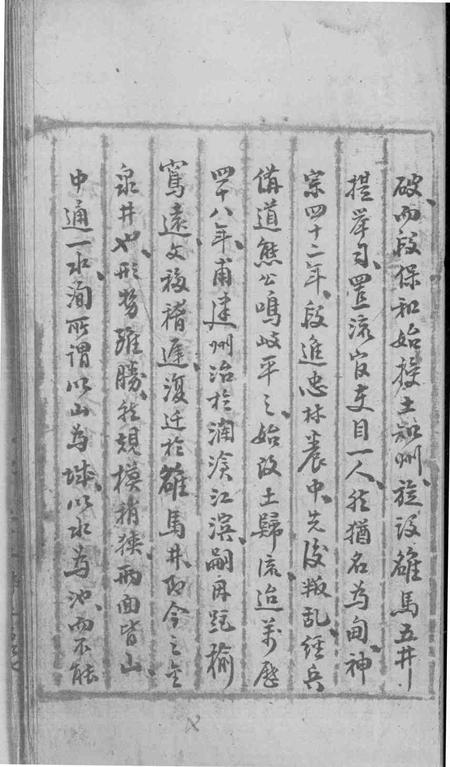 破而段保和始授土知州旋設雒馬五井
提举司置流官吏目一人然猶名為甸神
宗四十二年段進忠林養中先後叛乱經兵
俻道熊公鳴岐平之始改土歸流迨萬曆
四十八年甫建州治於瀾滄江濱嗣因距榆
窵遠文移稽遲復迁於雒馬井即今之金
泉井也形势雖勝然規模稍狹兩面皆山
中通一水洵所謂以山為城以水為池而不能